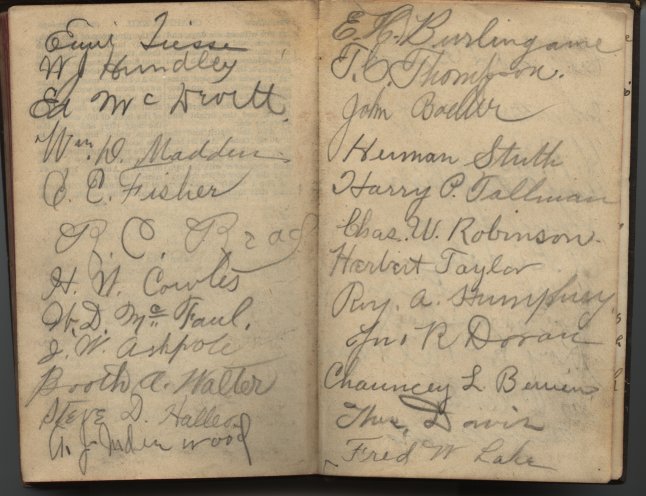 Emil Tiesse
W J Hundley
Ed McDevitt.
Wm. D. Madden
C. E. Fisher
R. C.
H. W. Cowles
W. D. McFaul.
J. W. Ashpole
Booth A. Walter
Steve D.
A. J. Underwood
E. H. Burlingame
T. C. Thompson.
John
Herman Stuth
Harry P. Tallman
Chas. W. Robinson.
Herbert Taylor
Roy. A. Humphrey
Jno R Doran
Chauncey L
Davis
Fred W Lake